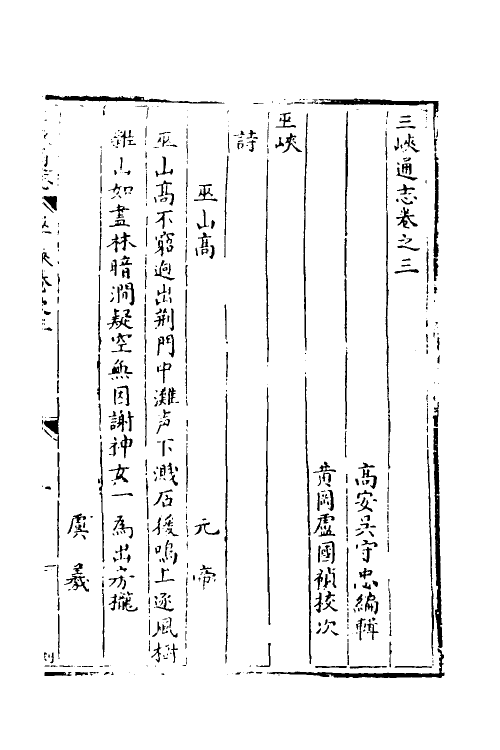 三峽通志卷之三
高安吳守忠編輯
黄岡盧國禎挍次
巫峽
詩
巫山高 元帝
巫山高不窮逈出荆門中灘声下濺石猨鳴上逐風樹
雜山如畫林暗澗疑空無因謝神女一為出房攏
虞羲